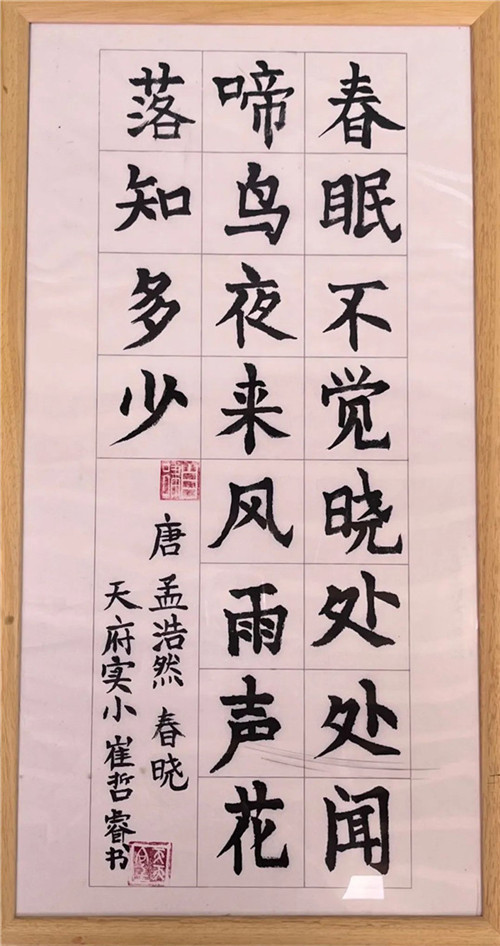 春眠不觉晓处处闻
啼鸟夜来风雨声花
落知多少
唐 孟浩然 春晓
天府实小 崔哲睿书